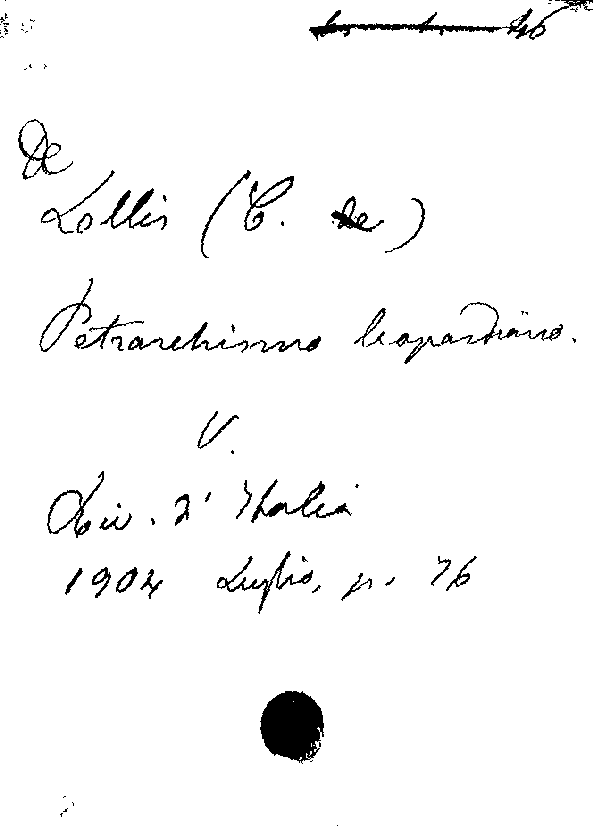 De
Lollis (C. de)
Petrarchismo leopardiano.
V.
Riv. d'Italia
1904 Luglio, p. 76